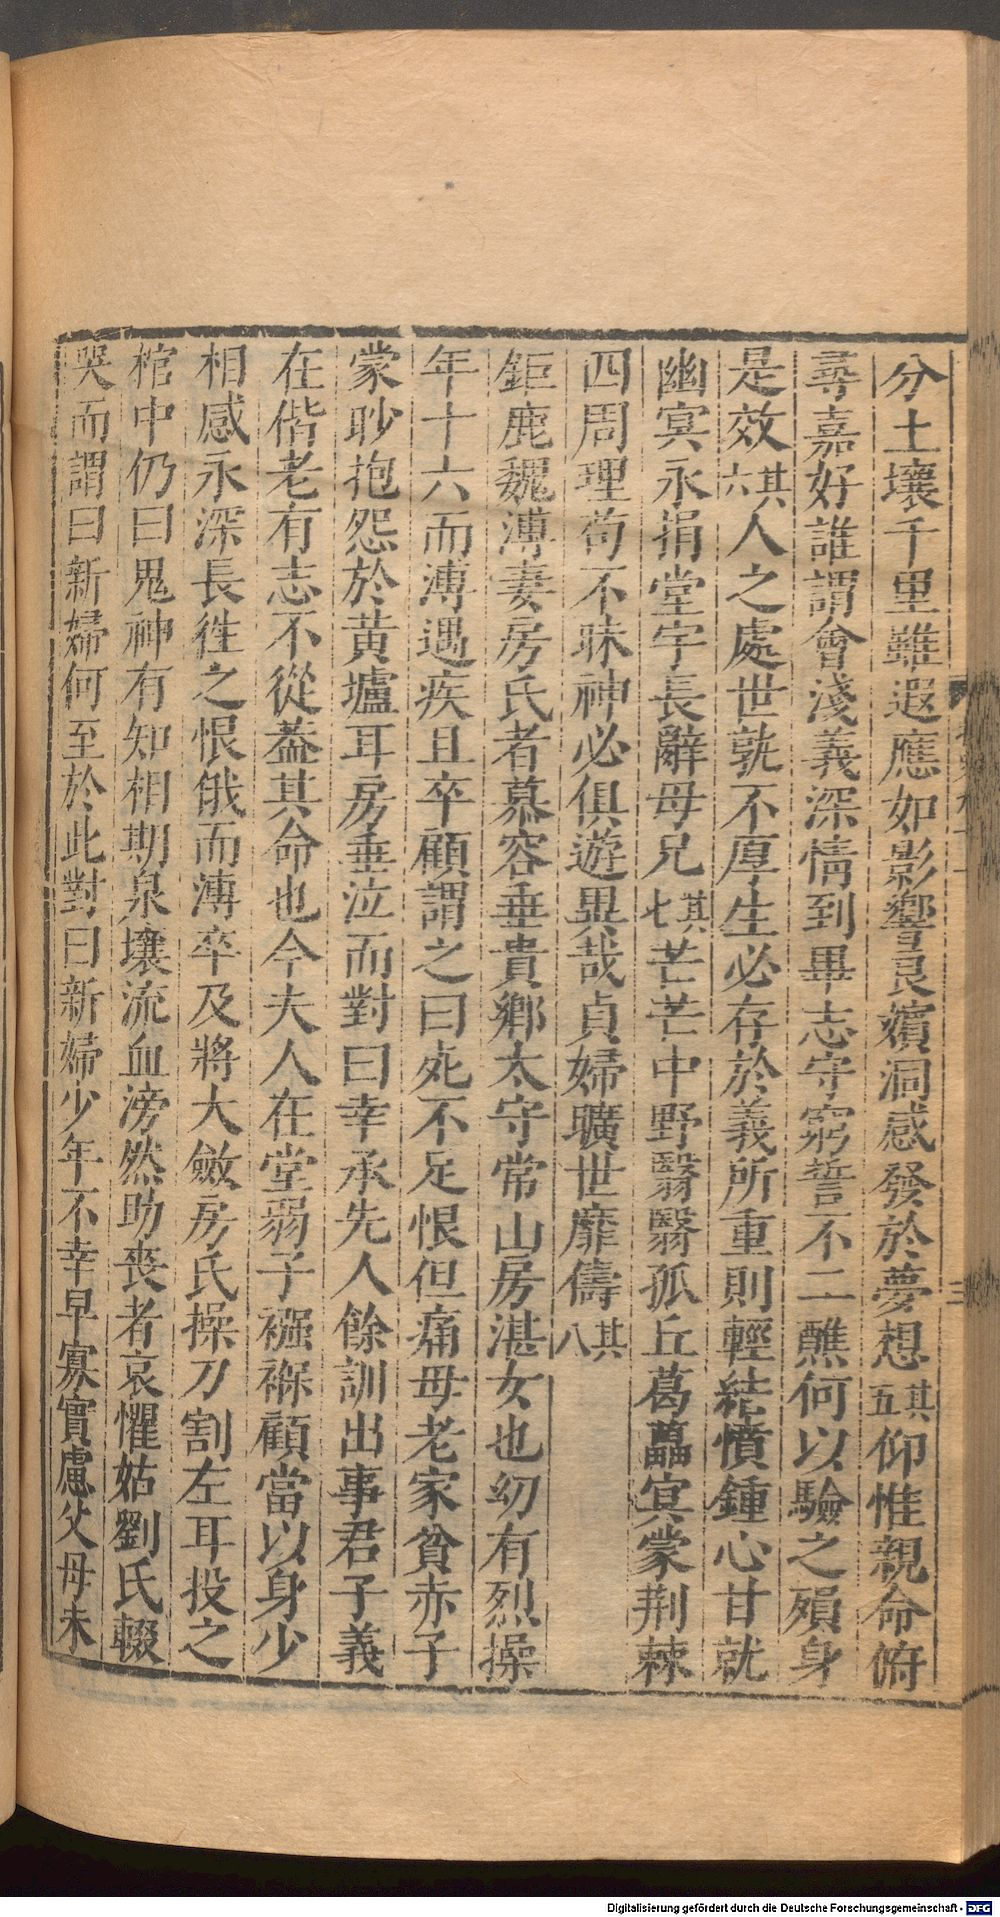 分土壤千里雖遐應如影響良嬪洞感發於夢想其五仰惟親命俯
尋嘉好誰謂會淺義深情到畢志守窮誓不二醮何以驗之殞身
是效其六人之處世孰不厚生必存於義所重則輕結憤鍾心甘就
幽冥永捐堂宇長辭母兄其七芒芒中野翳翳孤丘葛藟冥蒙荆棘
四周理苟不昧神必俱遊異哉貞婦曠世靡儔其八
鉅鹿魏溥妻房氏者慕容垂貴鄉太守常山房湛女也幼有烈操
年十六而溥遇疾且卒顧謂之曰死不足恨但痛母老家貧赤子
蒙眇抱怨於黃壚耳房垂泣而對曰幸承先人餘訓出事君子義
在偕老有志不從葢其命也今夫人在堂弱子襁褓顧當以身少
相感永深長徃之恨俄而溥卒及將大斂房氏操刀割左耳投之
棺中仍曰鬼神有知相期泉壤流血滂然助喪者哀懼姑劉氏輟
哭而謂曰新婦何至於此對曰新婦少年不幸早寡實慮父母未
三
Digitalisierung gefördert durch die Deutsche Forschungsgemeinschaft - DFG